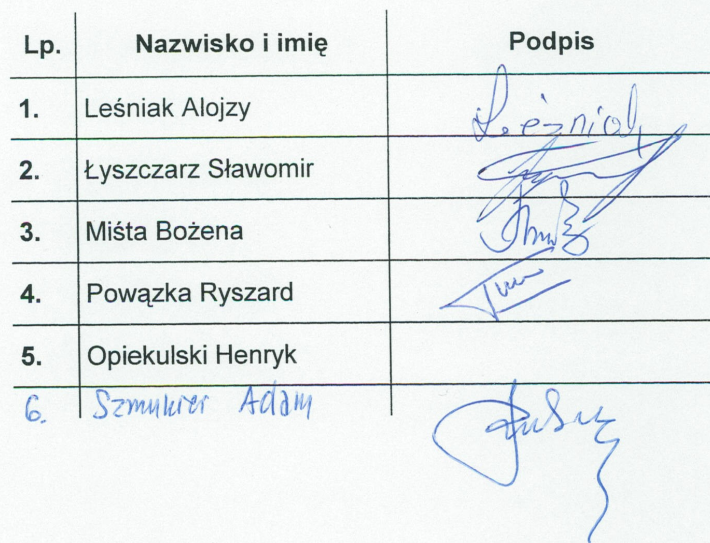 Lp. Nazwisko i imię Podpis
1. Leśniak Alojzy
2. Łyszczarz Sławomir
3. Miśta Bożena
4. Powązka Ryszard
5. Opiekulski Henryk
6. Adam